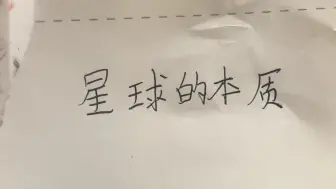 星球的本质